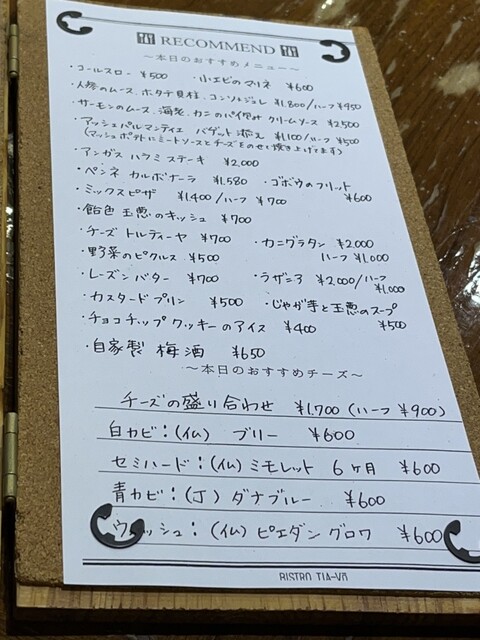 RECOMMEND
～本日のおすすめメニュー～
・コールスロー ¥500 ・小エビのマリネ ¥600
・人参のムース、ホタテ貝柱、コンソメジュレ ¥1,800/ハーフ ¥950
・サーモンのムース、海老、カニのパイ包み クリームソース ¥2,500
・アッシュパルマンティエ バゲット添え ¥1,100/ハーフ ¥500
(マッシュポテトにミートソースとチーズをのせ焼き上げてます)
・アンガス ハラミ ステーキ ¥2,000
・ペンネ カルボナーラ ¥1,580 ・ゴボウのフリット ¥600
・ミックスピザ ¥1,400/ハーフ ¥700
・飴色 玉葱のキッシュ ¥700
・チーズ トルティーヤ ¥700 ・カニグラタン ¥2,000
・野菜のピクルス ¥500 ハーフ ¥1,000
・レーズンバター ¥700 ・ラザニア ¥2,000/ハーフ ¥1,000
・カスタードプリン ¥500 ・じゃが芋と玉葱のスープ ¥500
・チョコチップクッキーのアイス ¥400
・自家製 梅酒 ¥650
～本日のおすすめチーズ～
チーズの盛り合わせ ¥1,700 (ハーフ ¥900)
白カビ：(仏) ブリー ¥600
セミハード：(仏) ミモレット 6ヶ月 ¥600
青カビ：(丁) ダナブルー ¥600
ウォッシュ：(仏) ピエダングロワ ¥600
BISTRO TIA-VO